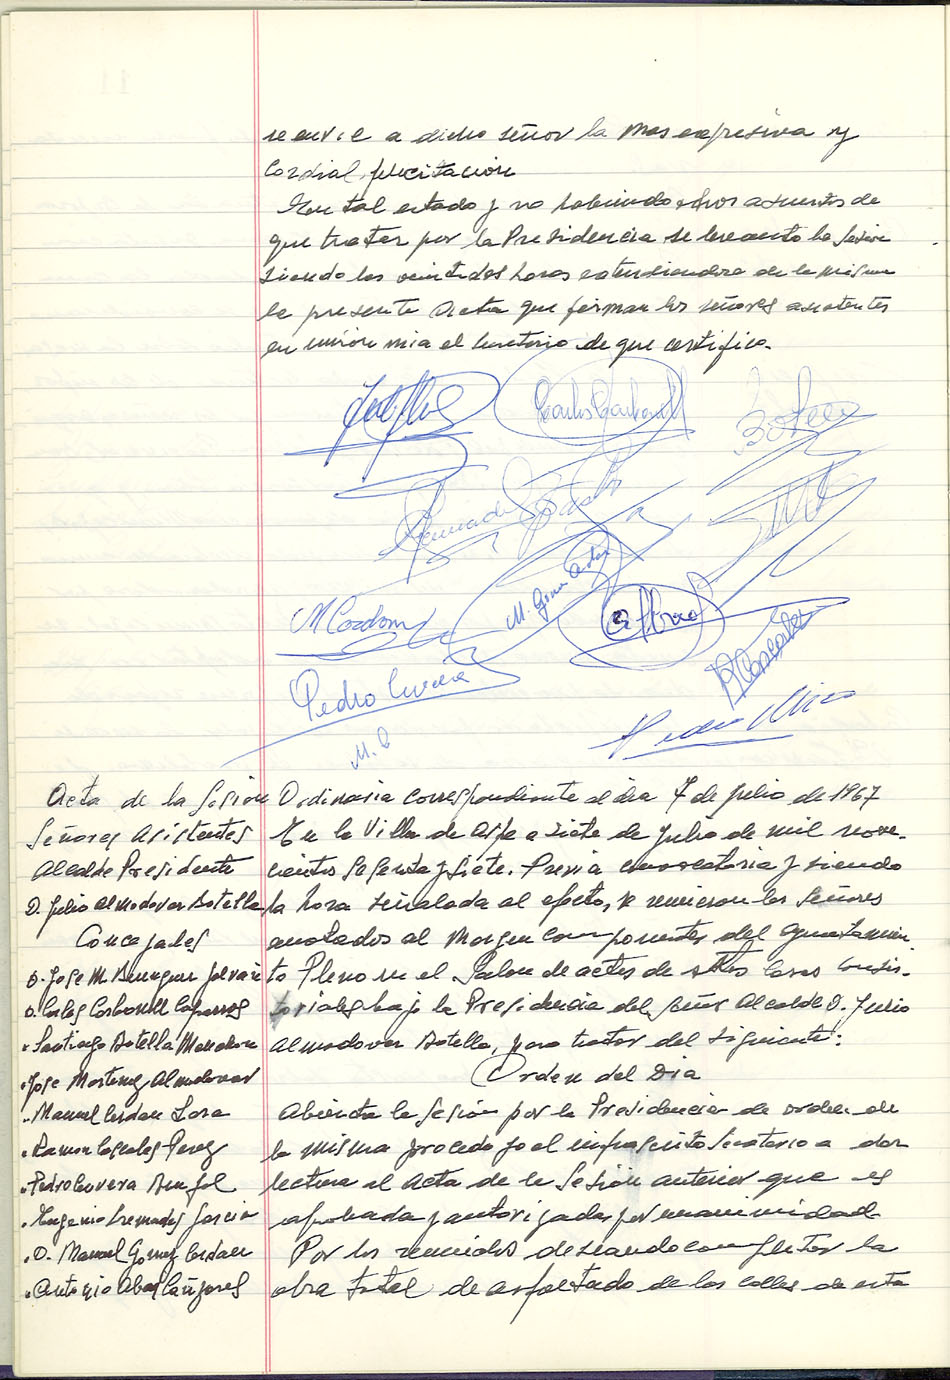 se envie a dicho señor la mas expresiva y
Cordial felicitacion
En tal estado y no habiendo otros asuntos de
que tratar por la Presidencia se levanto la Sesion
siendo las veintidos horas extendiendose de la misma
la presente Acta que firman los señores asistentes
en union mia el Secretario de que certifico.
Carlos Carbonell
M Cerdan
M. Gomez Cerdan
Pedro Cuvera
Acta de la Sesion Ordinaria correspondiente al dia 7 de julio de 1967
Señores Asistentes
Alcalde Presidente
D. Julio Almodovar Botella
Concejales
D. Jose M. Berenguer
D. Carlos Carbonell Caparros
" Santiago Botella
" Jose Martinez Almodovar
" Manuel Cerdan Sora
" Ramon Perez
" Pedro
" Eugenio Cremades Garcia
" D. Manuel Gomez Cerdan
" Antonio Abad Cañizares
En la Villa de Aspe a siete de Julio de mil nove-
cientos sesenta y siete. Previa convocatoria y siendo
la hora señalada al efecto, se reunieron los Señores
anotados al Margen componentes del Ayuntamien-
to Pleno en el Salon de actos de estas Casas Consis-
toriales bajo la Presidencia del Señor Alcalde D. Julio
Almodovar Botella, para tratar del siguiente:
Orden del Dia
Abierta la Sesion por la Presidencia de orden de
la misma procedo yo el infrascrito Secretario a dar
lectura al Acta de la Sesion anterior que es
aprobada y autorizada por unanimidad
Por los reunidos deseando completar la
obra total de asfaltado de las calles de esta